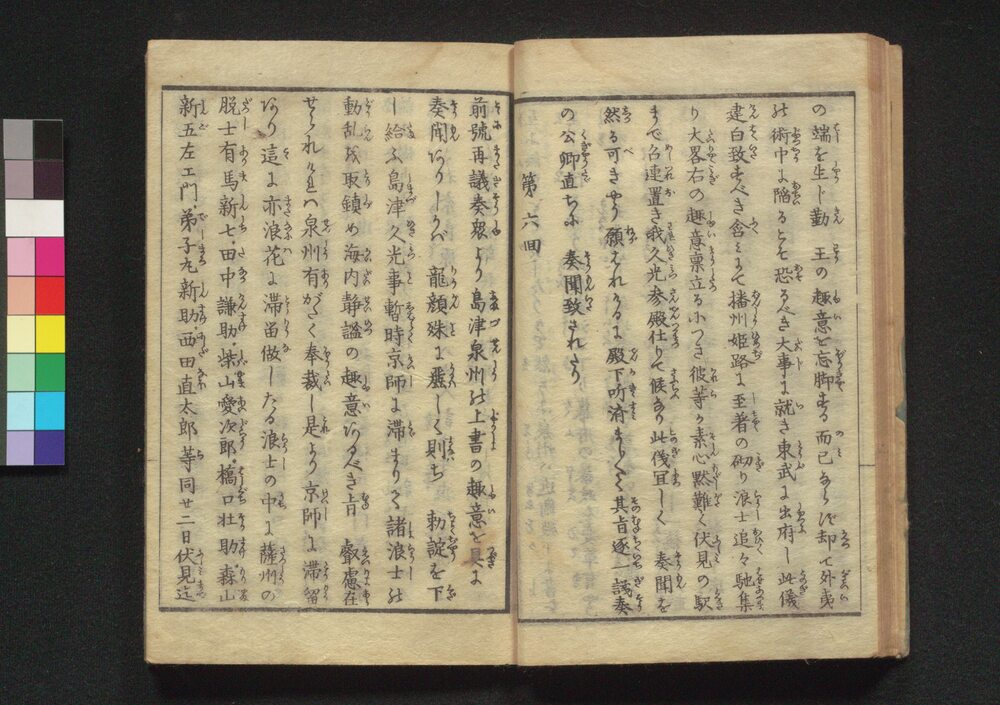 の端を生じ勤　王の趣意を忘脚する而已ならず却て外夷
の術中に陥るとも恐るべき大事に就き東武に出府し此儀
建白致すべき含にて播州姫路に至着の砌り浪士追々馳集
り大畧右の趣意稟立るにつき彼等が素心黙難く伏見の駅
まで召連置き我久光参殿仕りて候なり此儀宜しく　奏聞を
然る可きやう願はれけるに殿下所済ましく〳〵其旨逐一議奏
の公卿直ちに　奏聞致されたり
第六回
前號再議奏衆より島津泉州の上書の趣意を具に
奏聞ありしかば　龍顔殊に麗しく則ち　勅諚を下
し給ふ島津久光事暫時京師に滞まりて諸浪士の
動乱を取鎮め海内静謐の趣意あるべき旨　叡慮在
せられければ泉州有がたく奉裁し是より京師に滞留
あり這に亦浪花に滞留做したる浪士の中に薩州の
脱士有馬新七・田中謙助・柴山愛次郎・橋口壮助・森山
新五左エ門・弟子丸新助・西田直太郎等同廿二日伏見迄